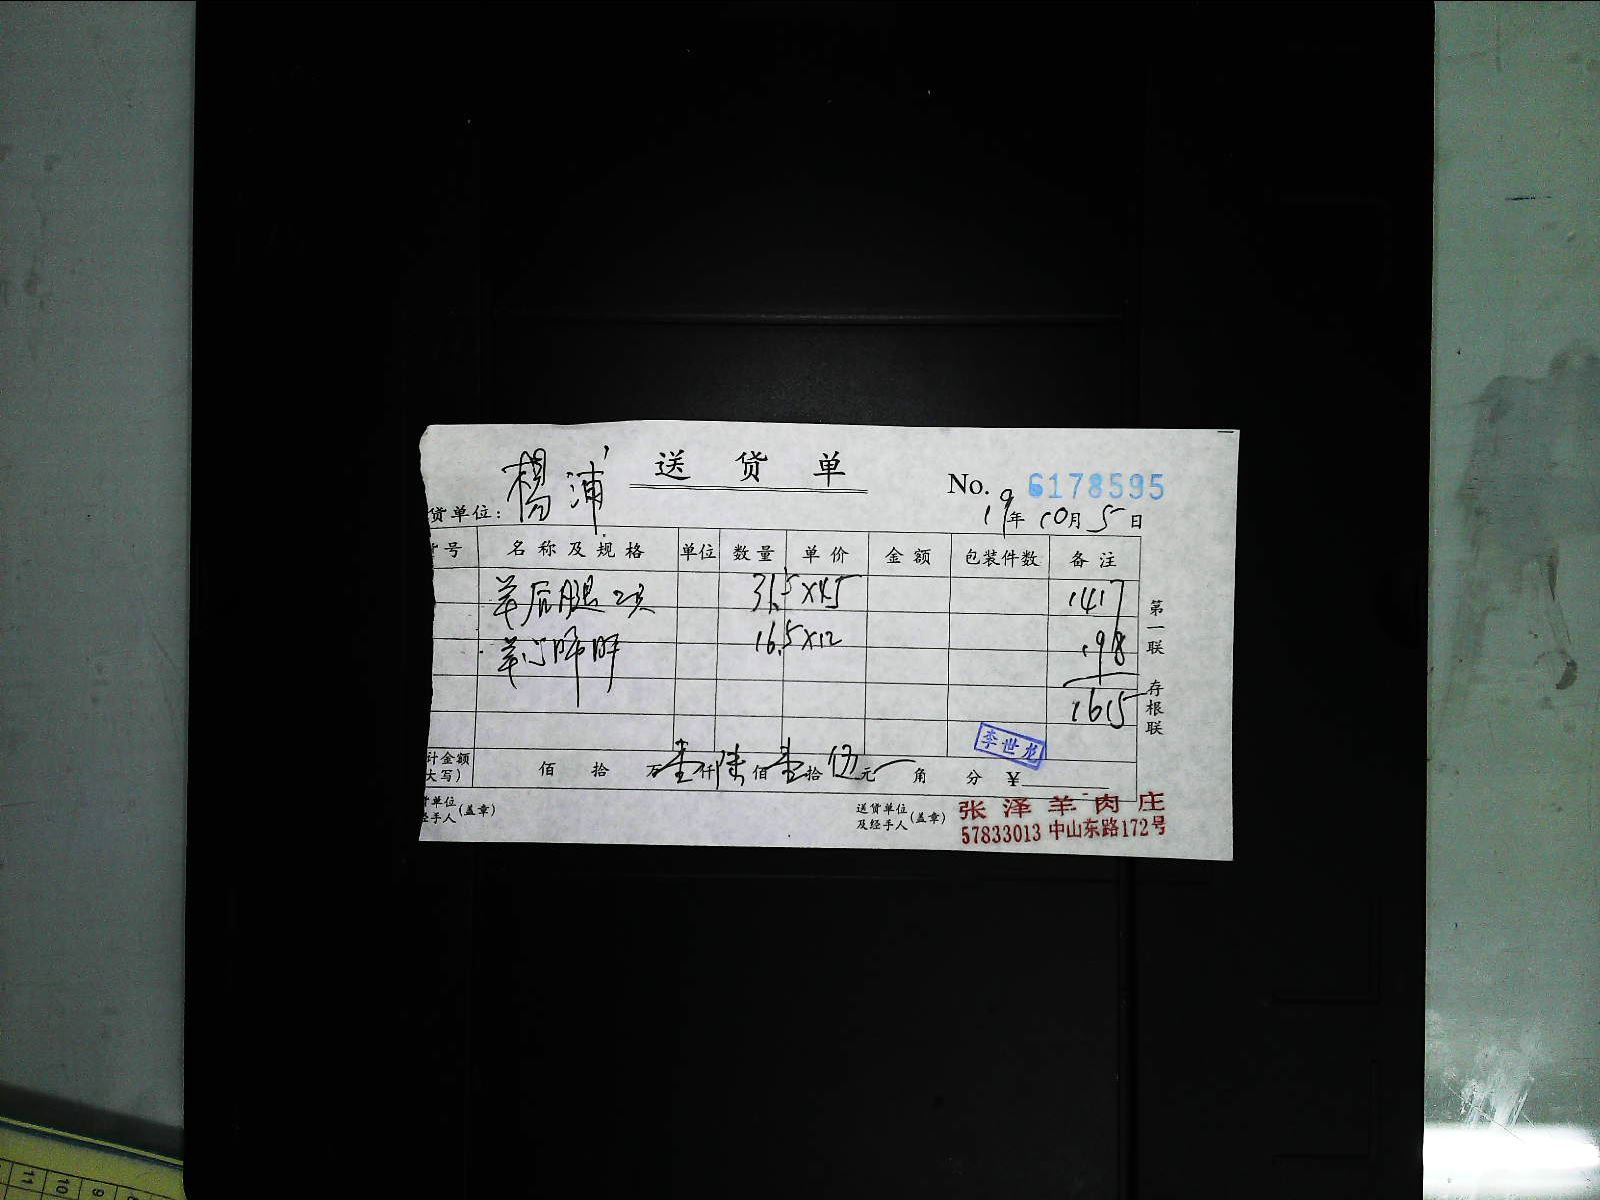 杨浦 送货单 No. 6178595
货单位： 19年10月5日
号 名称及规格 单位 数量 单价 金额 包装件数 备注
羊后腿 2只 31.5×45 1417
羊心肺肝 16.5×12 198
1615
第一联 存根联
李世龙
计金额 佰 拾 万壹仟陆佰壹拾伍元 角 分 ¥
大写）
单位 送货单位
经手人（盖章） 及经手人（盖章）
张泽羊肉庄
57833013 中山东路172号
11 10 9